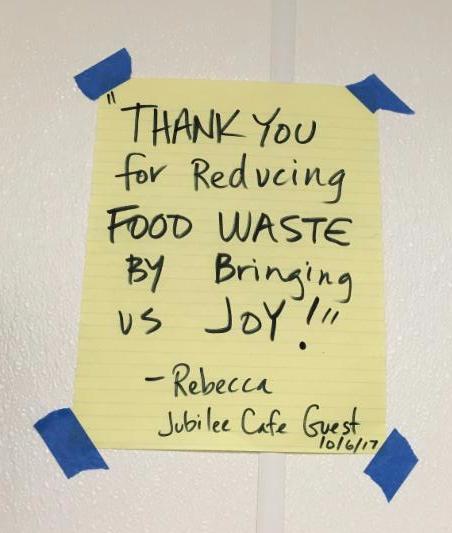 "THANK YOU
for Reducing
FOOD WASTE
BY Bringing
us JOY!"
- Rebecca
Jubilee Cafe Guest
10/6/17